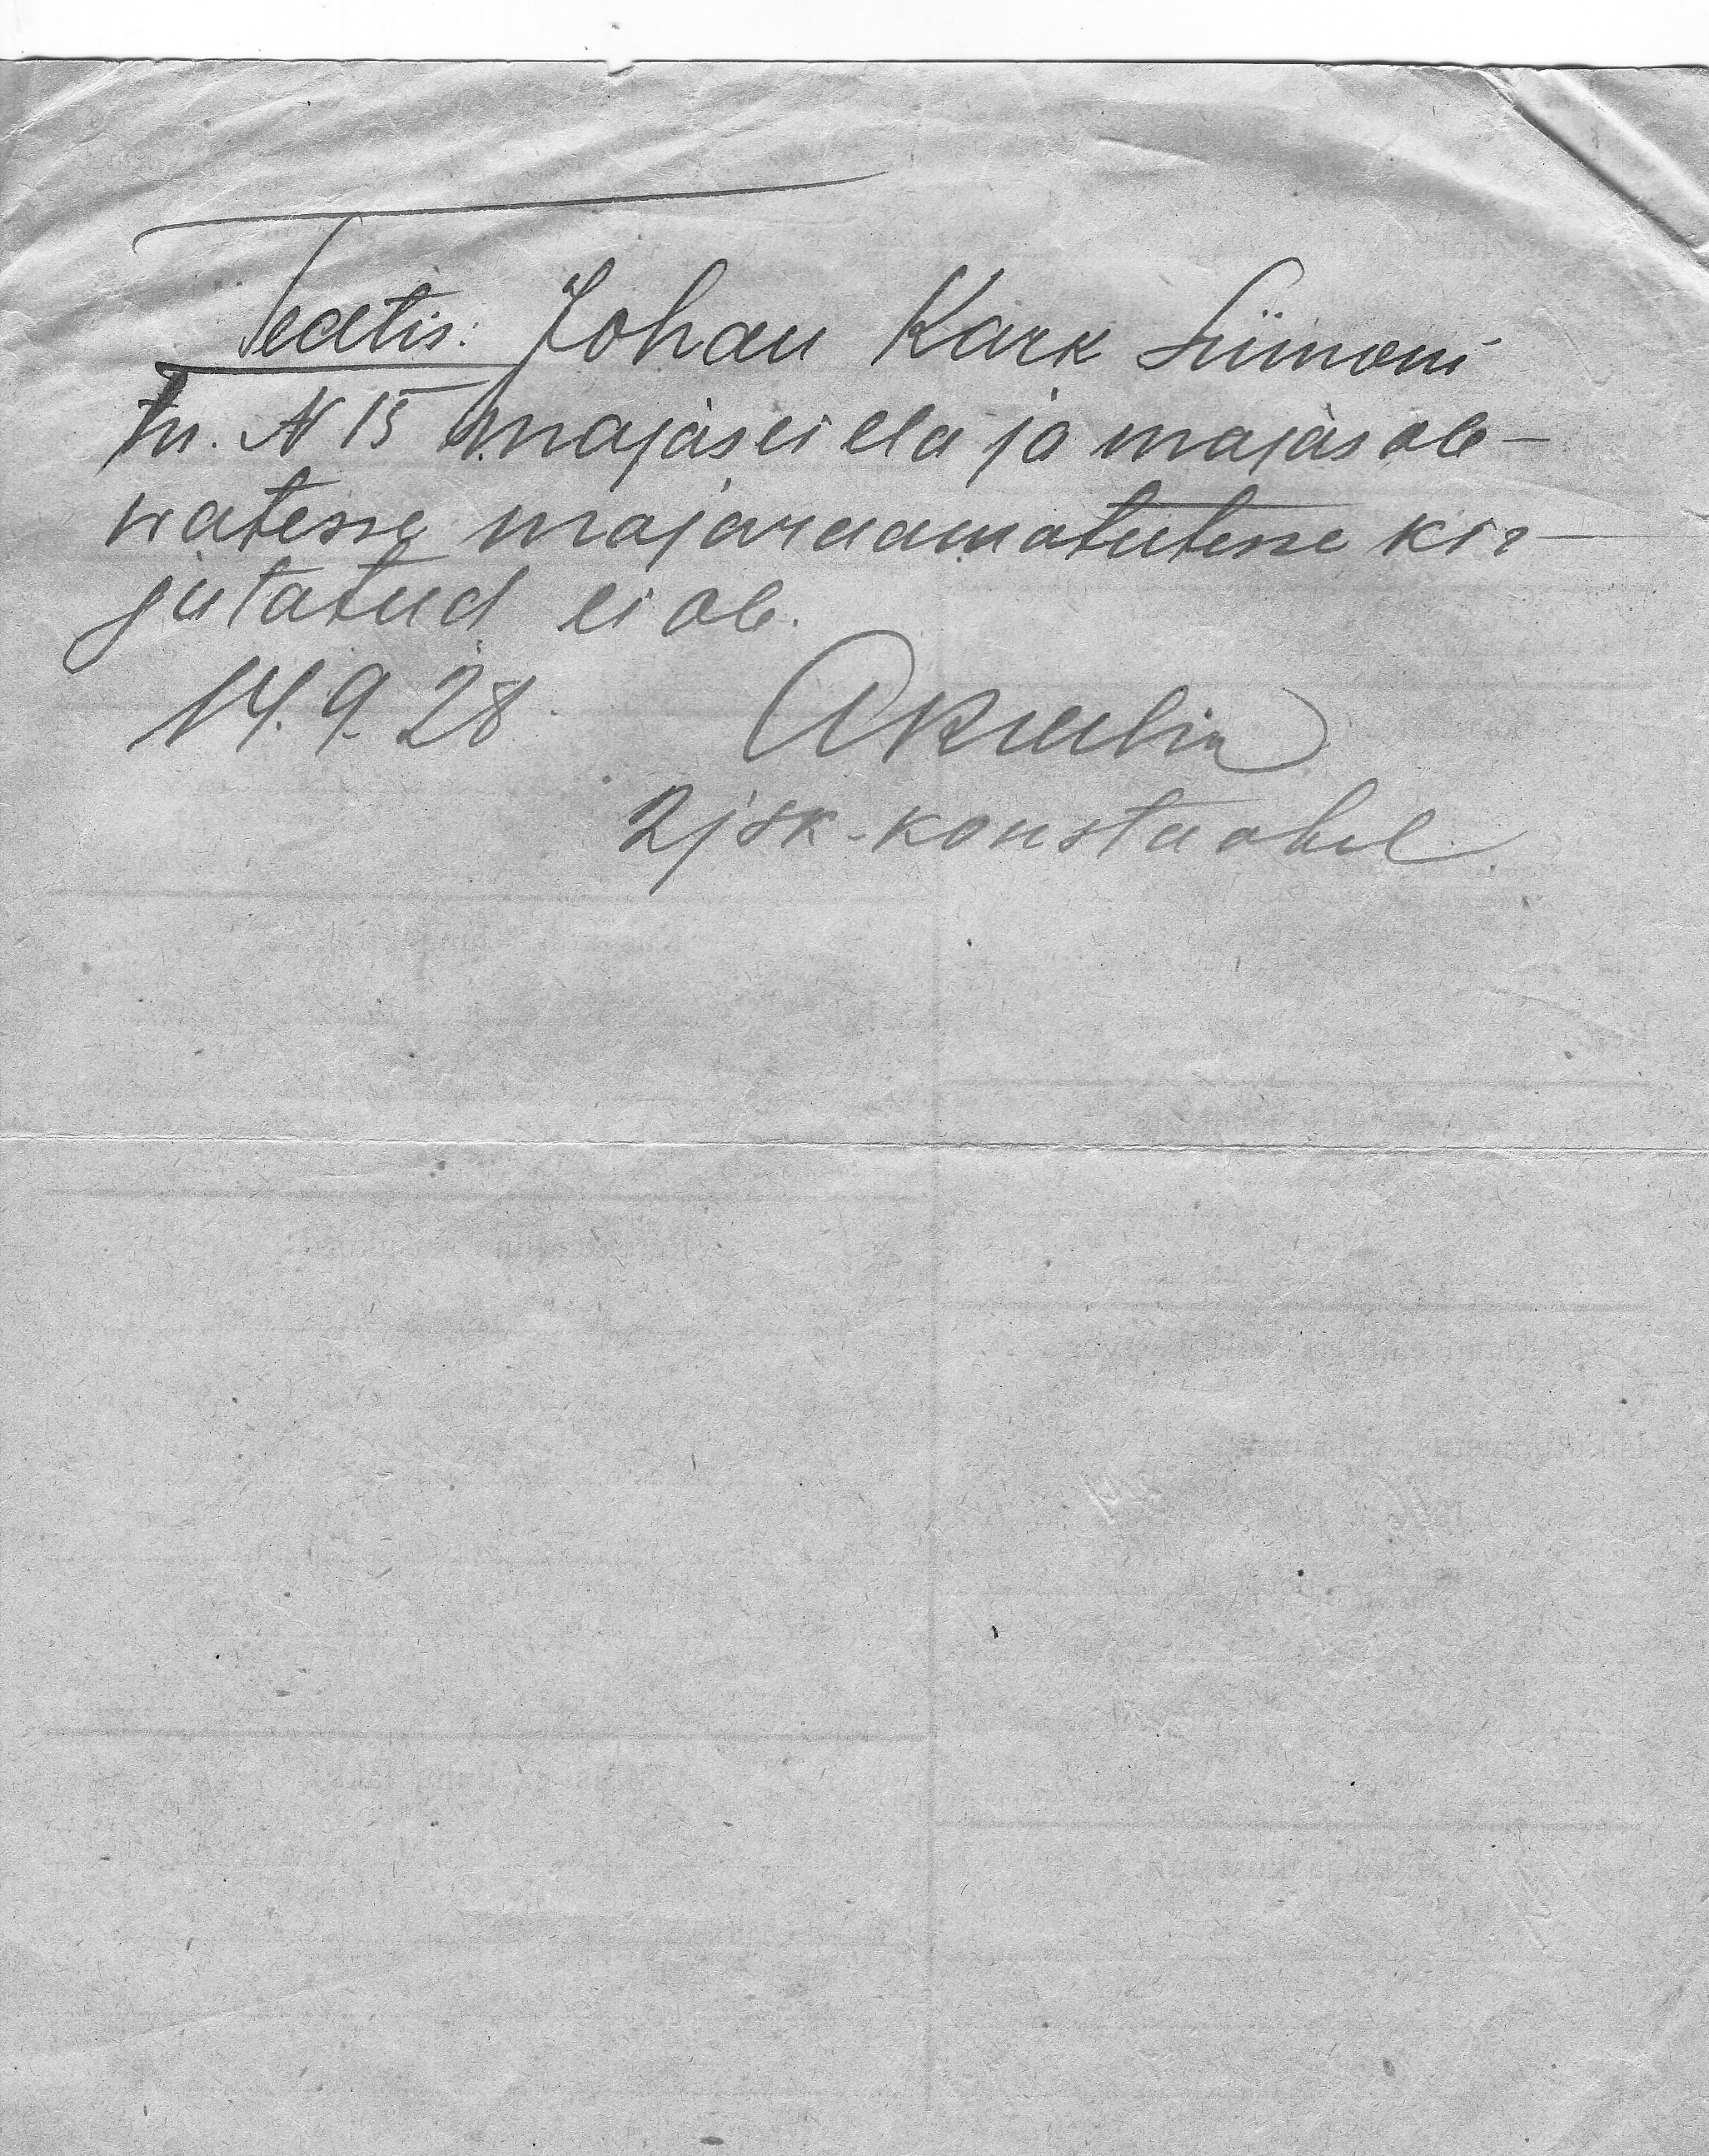 Teatis: Johan Kark Siimoni
tn. N 15 majas ei ela ja majas ole-
watesse majaraamatutesse kir-
jutatud ei ole.
14.9.28.
2 jsk-konstaabel.